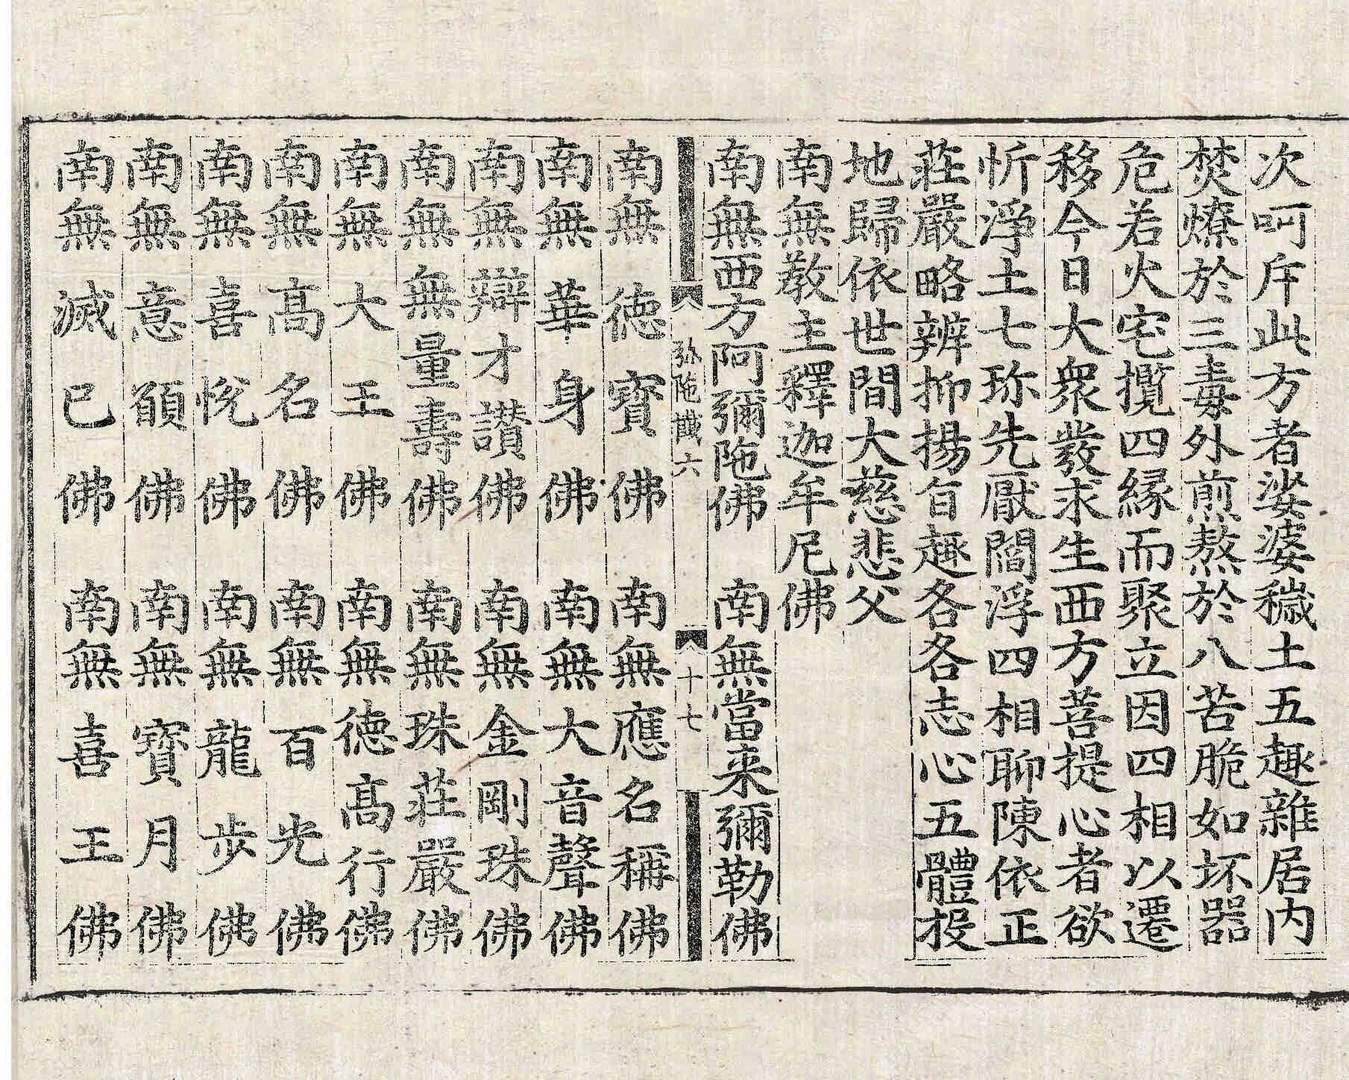 次呵斥此方者娑婆穢土五趣雜居内
焚燎於三毒外煎熬於八苦脆如坏器
危若火宅攬四緣而聚立因四相以遷
移今日大衆發求生西方菩提心者欲
忻淨土七珎先厭閻浮四相聊陳依正
莊嚴略辨抑揚百趣各各志心五體投
地歸依世間大慈悲父
南無教主釋迦牟尼佛
南無西方阿彌陁佛 南無當来彌勒佛
弥陁懺六 十七
南無德寶佛 南無應名稱佛
南無華身佛 南無大音聲佛
南無辯才讃佛 南無金剛珠佛
南無無量壽佛 南無珠莊嚴佛
南無大王佛 南無德髙行佛
南無髙名佛 南無百光佛
南無喜悅佛 南無龍步佛
南無意願佛 南無寶月佛
南無滅已佛 南無喜王佛